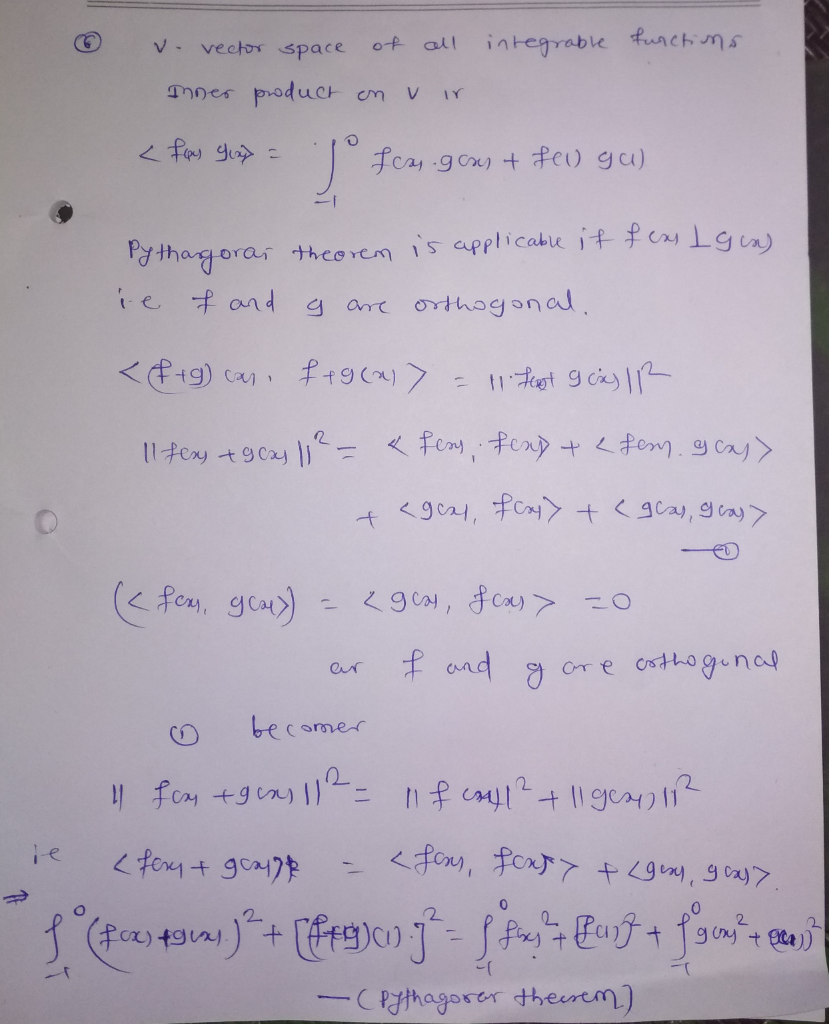 ⑥ V. vector space of all integrable functions
Inner product on V is
< f(x) g(x)> = ∫₋₁⁰ f(x).g(x) + f(1) g(1)
Pythagoras theorem is applicable if f(x) ⊥ g(x)
i.e f and g are orthogonal.
<(f+g)(x), f+g(x)> = ||f(x)+ g(x)||²
||f(x) + g(x)||² = < f(x), f(x)> + < f(x). g(x)>
+ <g(x), f(x)> + < g(x), g(x)>
—①
(< f(x), g(x)>) = <g(x), f(x)> = 0
as f and g are orthogonal
① becomes
|| f(x) + g(x) ||² = || f(x)||² + ||g(x)||²
ie < f(x) + g(x)> = < f(x), f(x)> + <g(x), g(x)>
⇒ ∫₋₁⁰ (f(x) + g(x))² + [(f+g)(1)]² = ∫₋₁⁰ f(x)² + [f(1)]² + ∫₋₁⁰ g(x)² + g(1))²
— (Pythagoras theorem)